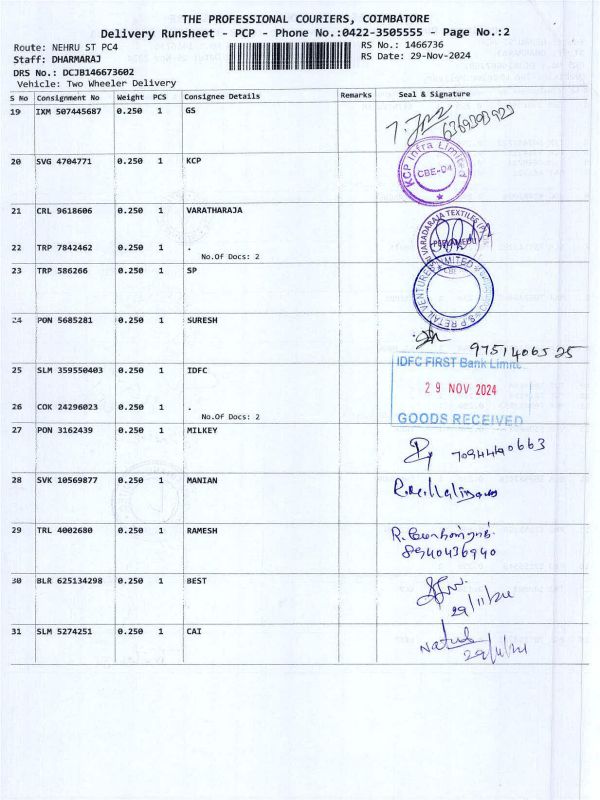 THE PROFESSIONAL COURIERS, COIMBATORE
Delivery Runsheet - PCP - Phone No.:0422-3505555 - Page No.:2
Route: NEHRU ST PC4 RS No.: 1466736
Staff: DHARMARAJ RS Date: 29-Nov-2024
DRS No.: DCJB146673602
Vehicle: Two Wheeler Delivery
S No Consignment No Weight PCS Consignee Details Remarks Seal & Signature
19 IXM 507445687 0.250 1 GS
20 SVG 4704771 0.250 1 KCP KCP Infra Limited CBE-04
21 CRL 9618606 0.250 1 VARATHARAJA VARADARAJA TEXTILES PEELAMEDU
22 TRP 7842462 0.250 1 .
No.Of Docs: 2
23 TRP 586266 0.250 1 SP S.P RETAIL VENTURES LIMITED
24 PON 5685281 0.250 1 SURESH
9751406525
25 SLM 359550403 0.250 1 IDFC IDFC FIRST Bank
29 NOV 2024
26 COK 24296023 0.250 1 .
No.Of Docs: 2 GOODS RECEIVED
27 PON 3162439 0.250 1 MILKEY
7094490663
28 SVK 10569877 0.250 1 MANIAN
29 TRL 4002680 0.250 1 RAMESH
8940436940
30 BLR 625134298 0.250 1 BEST
29/11/24
31 SLM 5274251 0.250 1 CAI
29/11/24